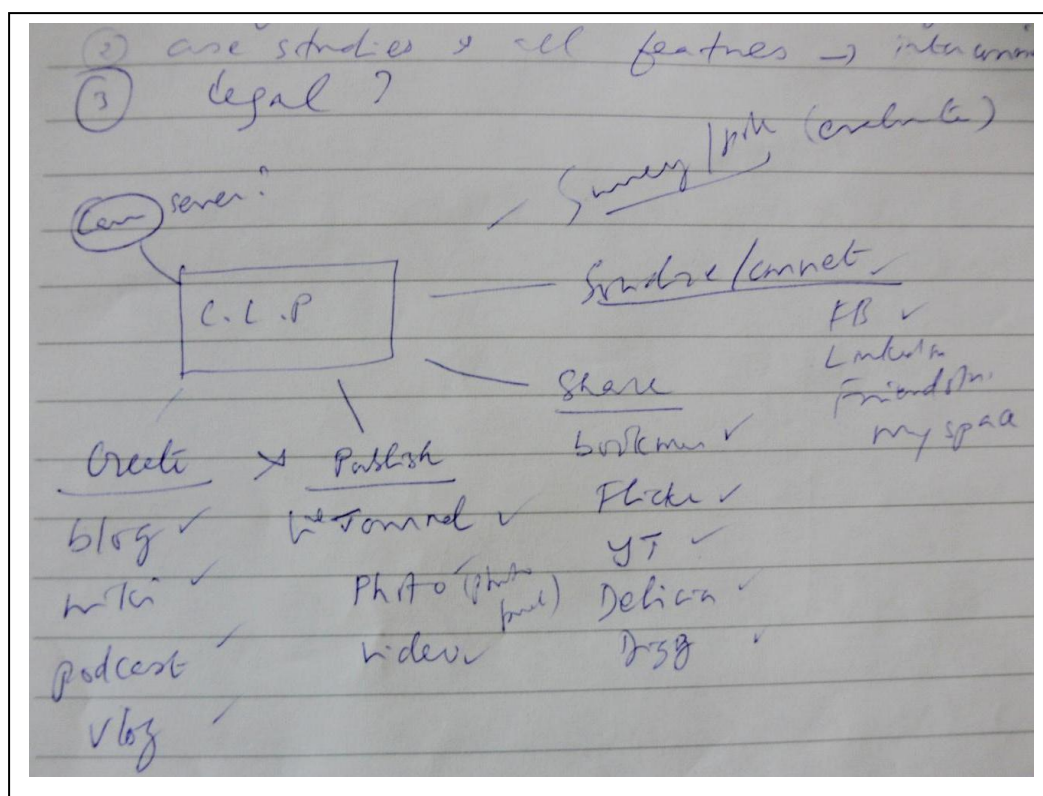 ② case studies & all features →
③ legal ?
Survey / poll (evaluate)
server?
C.L.P
/connect
FB ✓
Linkedin
Friendstr.
my space
Share
bookmar ✓
Flickr ✓
YT ✓
Delicia ✓
Digg ✓
Create
blog ✓
wiki ✓
podcast ✓
Vlog ✓
Publish
Journal ✓
Photo (photo
video ✓